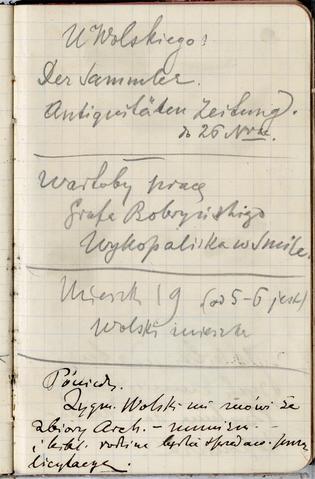 U Wolskiego:
Der Sammler.
Antiquitäten Zeitung.
do 26 Nru.
Wartoby pracę
Grafa Bobryńskiego
Wykopaliska w Smile.
Mieszk 19 (od 5-6 jest)
Wolski mieszk
Poniedz.
Zygm. Wolski mi mówi że
zbiory Arch. - numizm. -
i bibl. będą sprzedaw. przez
licytacyę.